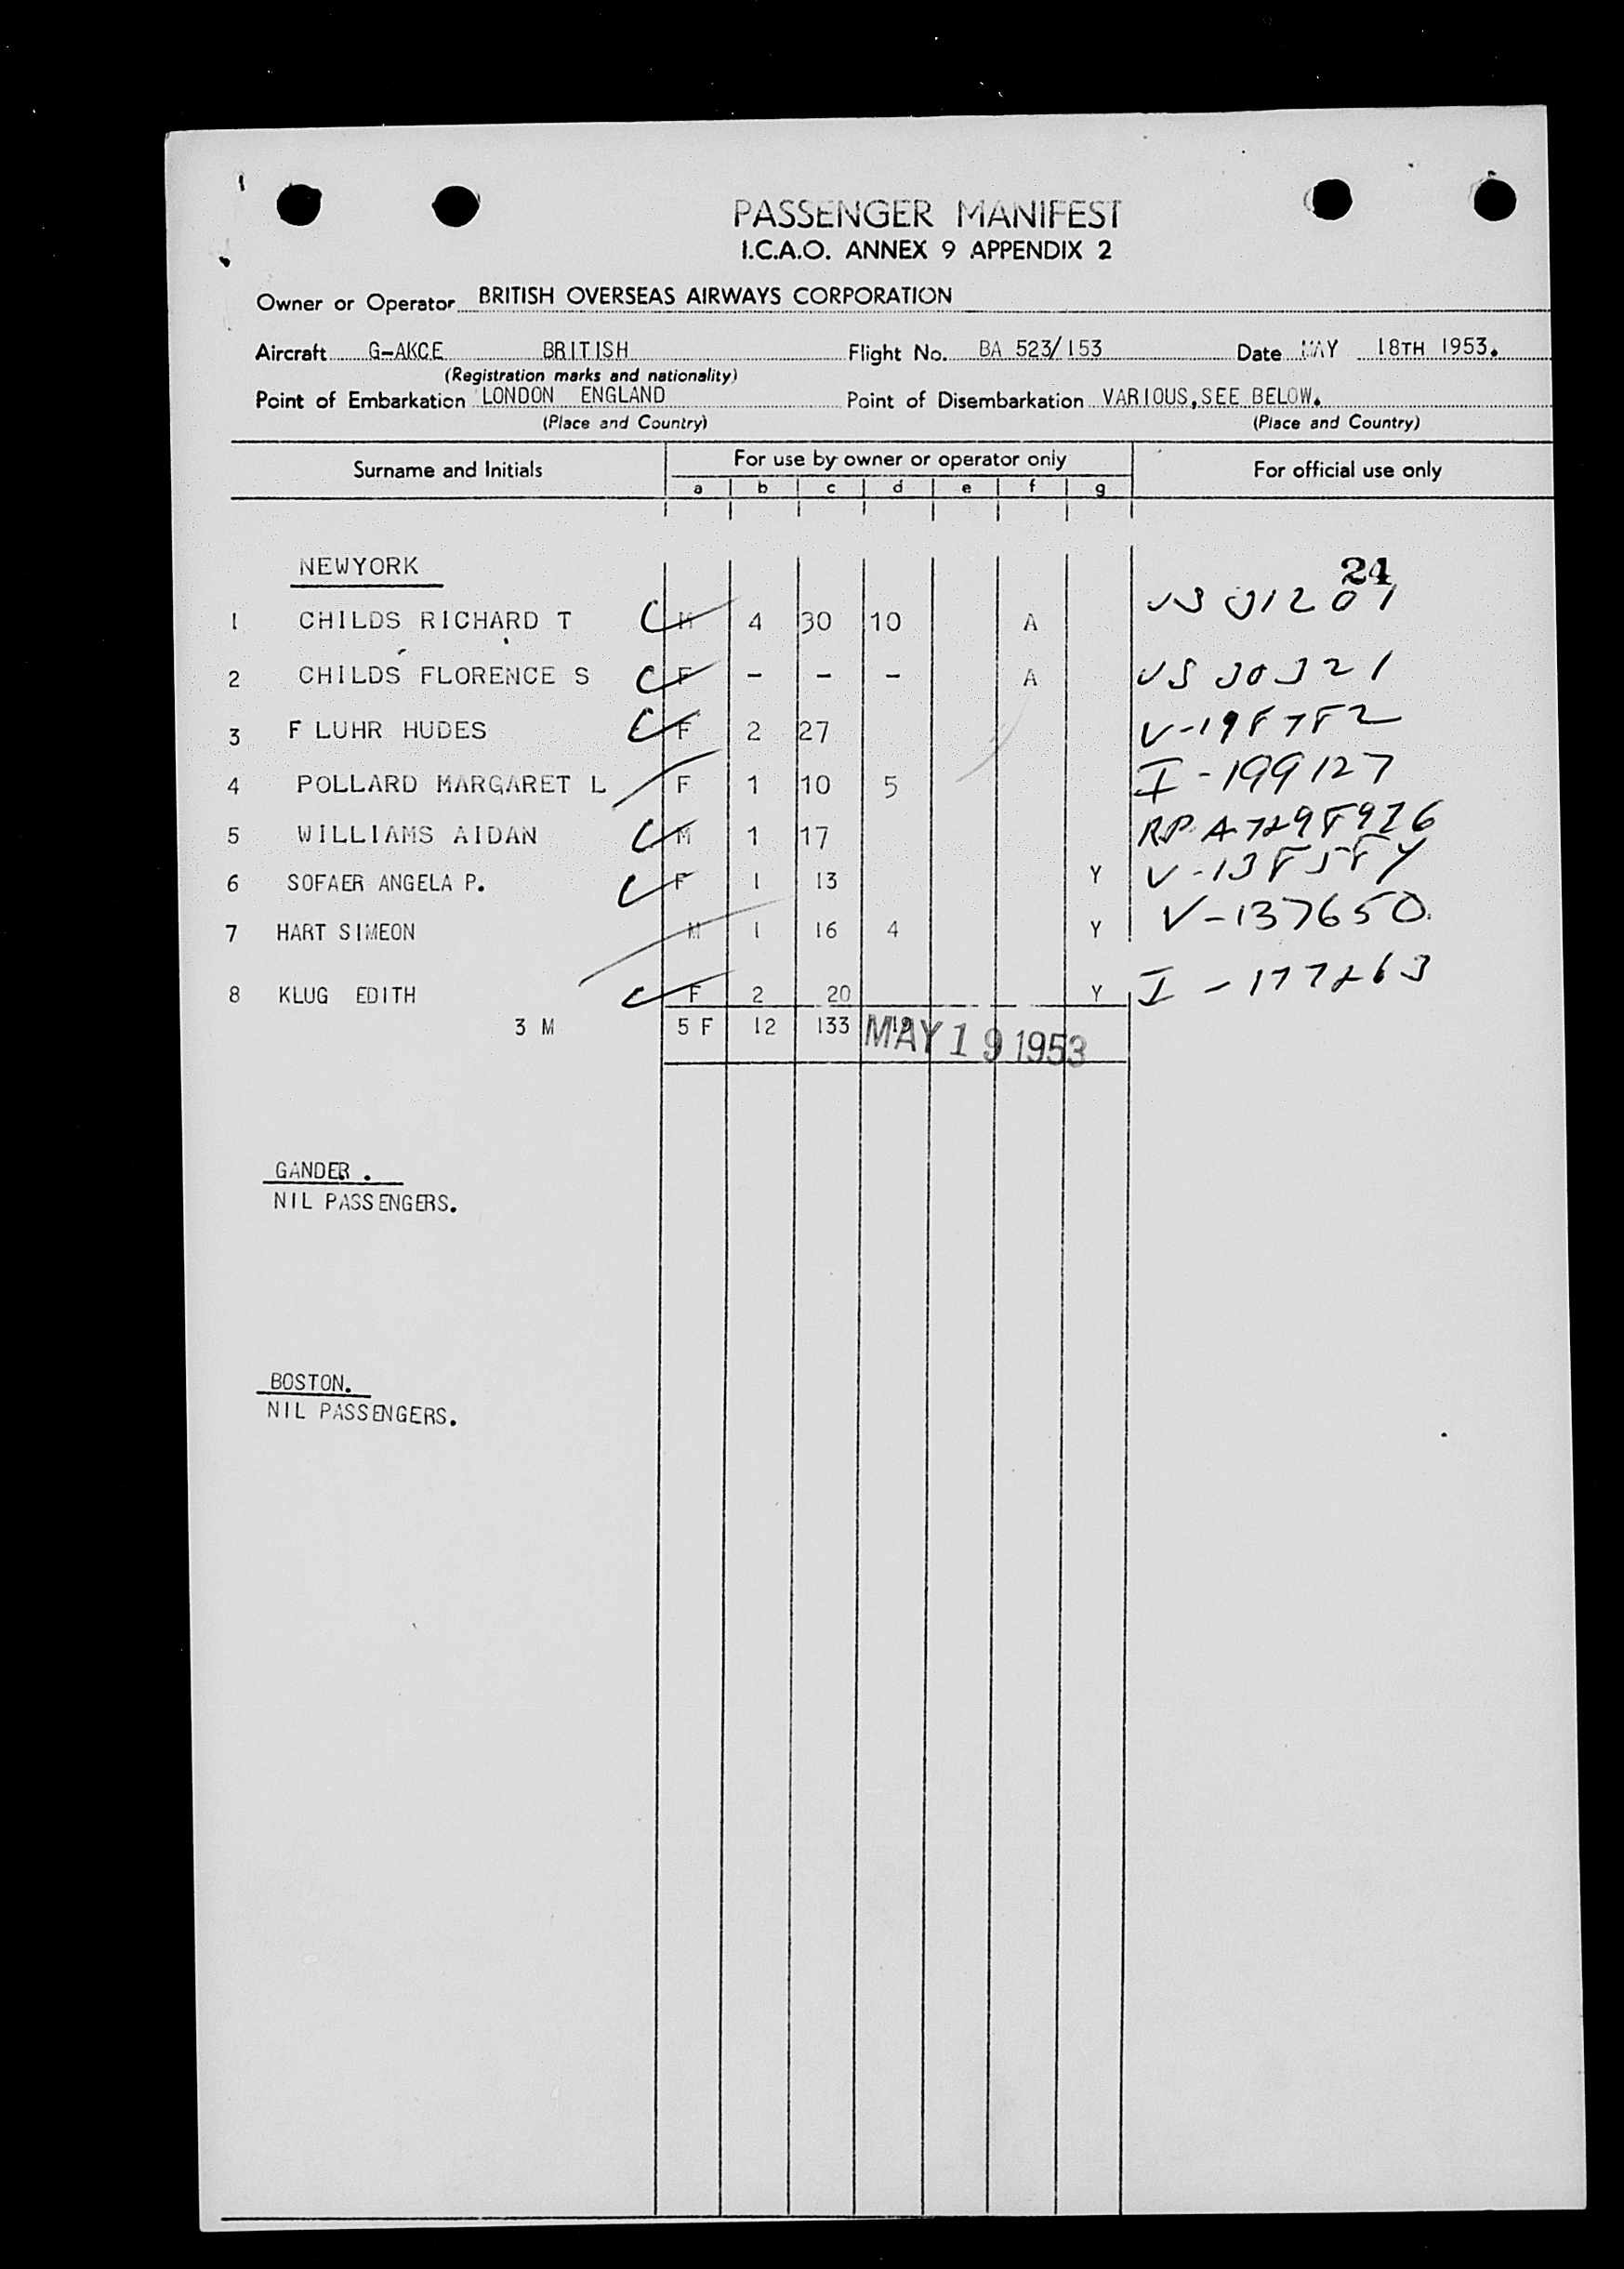 PASSENGER MANIFEST
I.C.A.O. ANNEX 9 APPENDIX 2
Owner or Operator BRITISH OVERSEAS AIRWAYS CORPORATION
Aircraft G-AKCE BRITISH Flight No. BA 523/153 Date MAY 18TH 1953.
(Registration marks and nationality)
Point of Embarkation LONDON ENGLAND Point of Disembarkation VARIOUS,SEE BELOW.
(Place and Country) (Place and Country)
Surname and Initials For use by owner or operator only For official use only
a b c d e f g
NEWYORK 24
1 CHILDS RICHARD T C M 4 30 10 A US 31201
2 CHILDS FLORENCE S C F - - - A US 30321
3 F LUHR HUDES C F 2 27 V-198782
4 POLLARD MARGARET L F 1 10 5 I-199127
5 WILLIAMS AIDAN C M 1 17 RP A-7298926
6 SOFAER ANGELA P. C F 1 13 Y
7 HART SIMEON M 1 16 4 Y V-137650
8 KLUG EDITH C F 2 20 Y I-177263
3 M 5 F 12 133 19
MAY 19 1953
GANDER.
NIL PASSENGERS.
BOSTON.
NIL PASSENGERS.